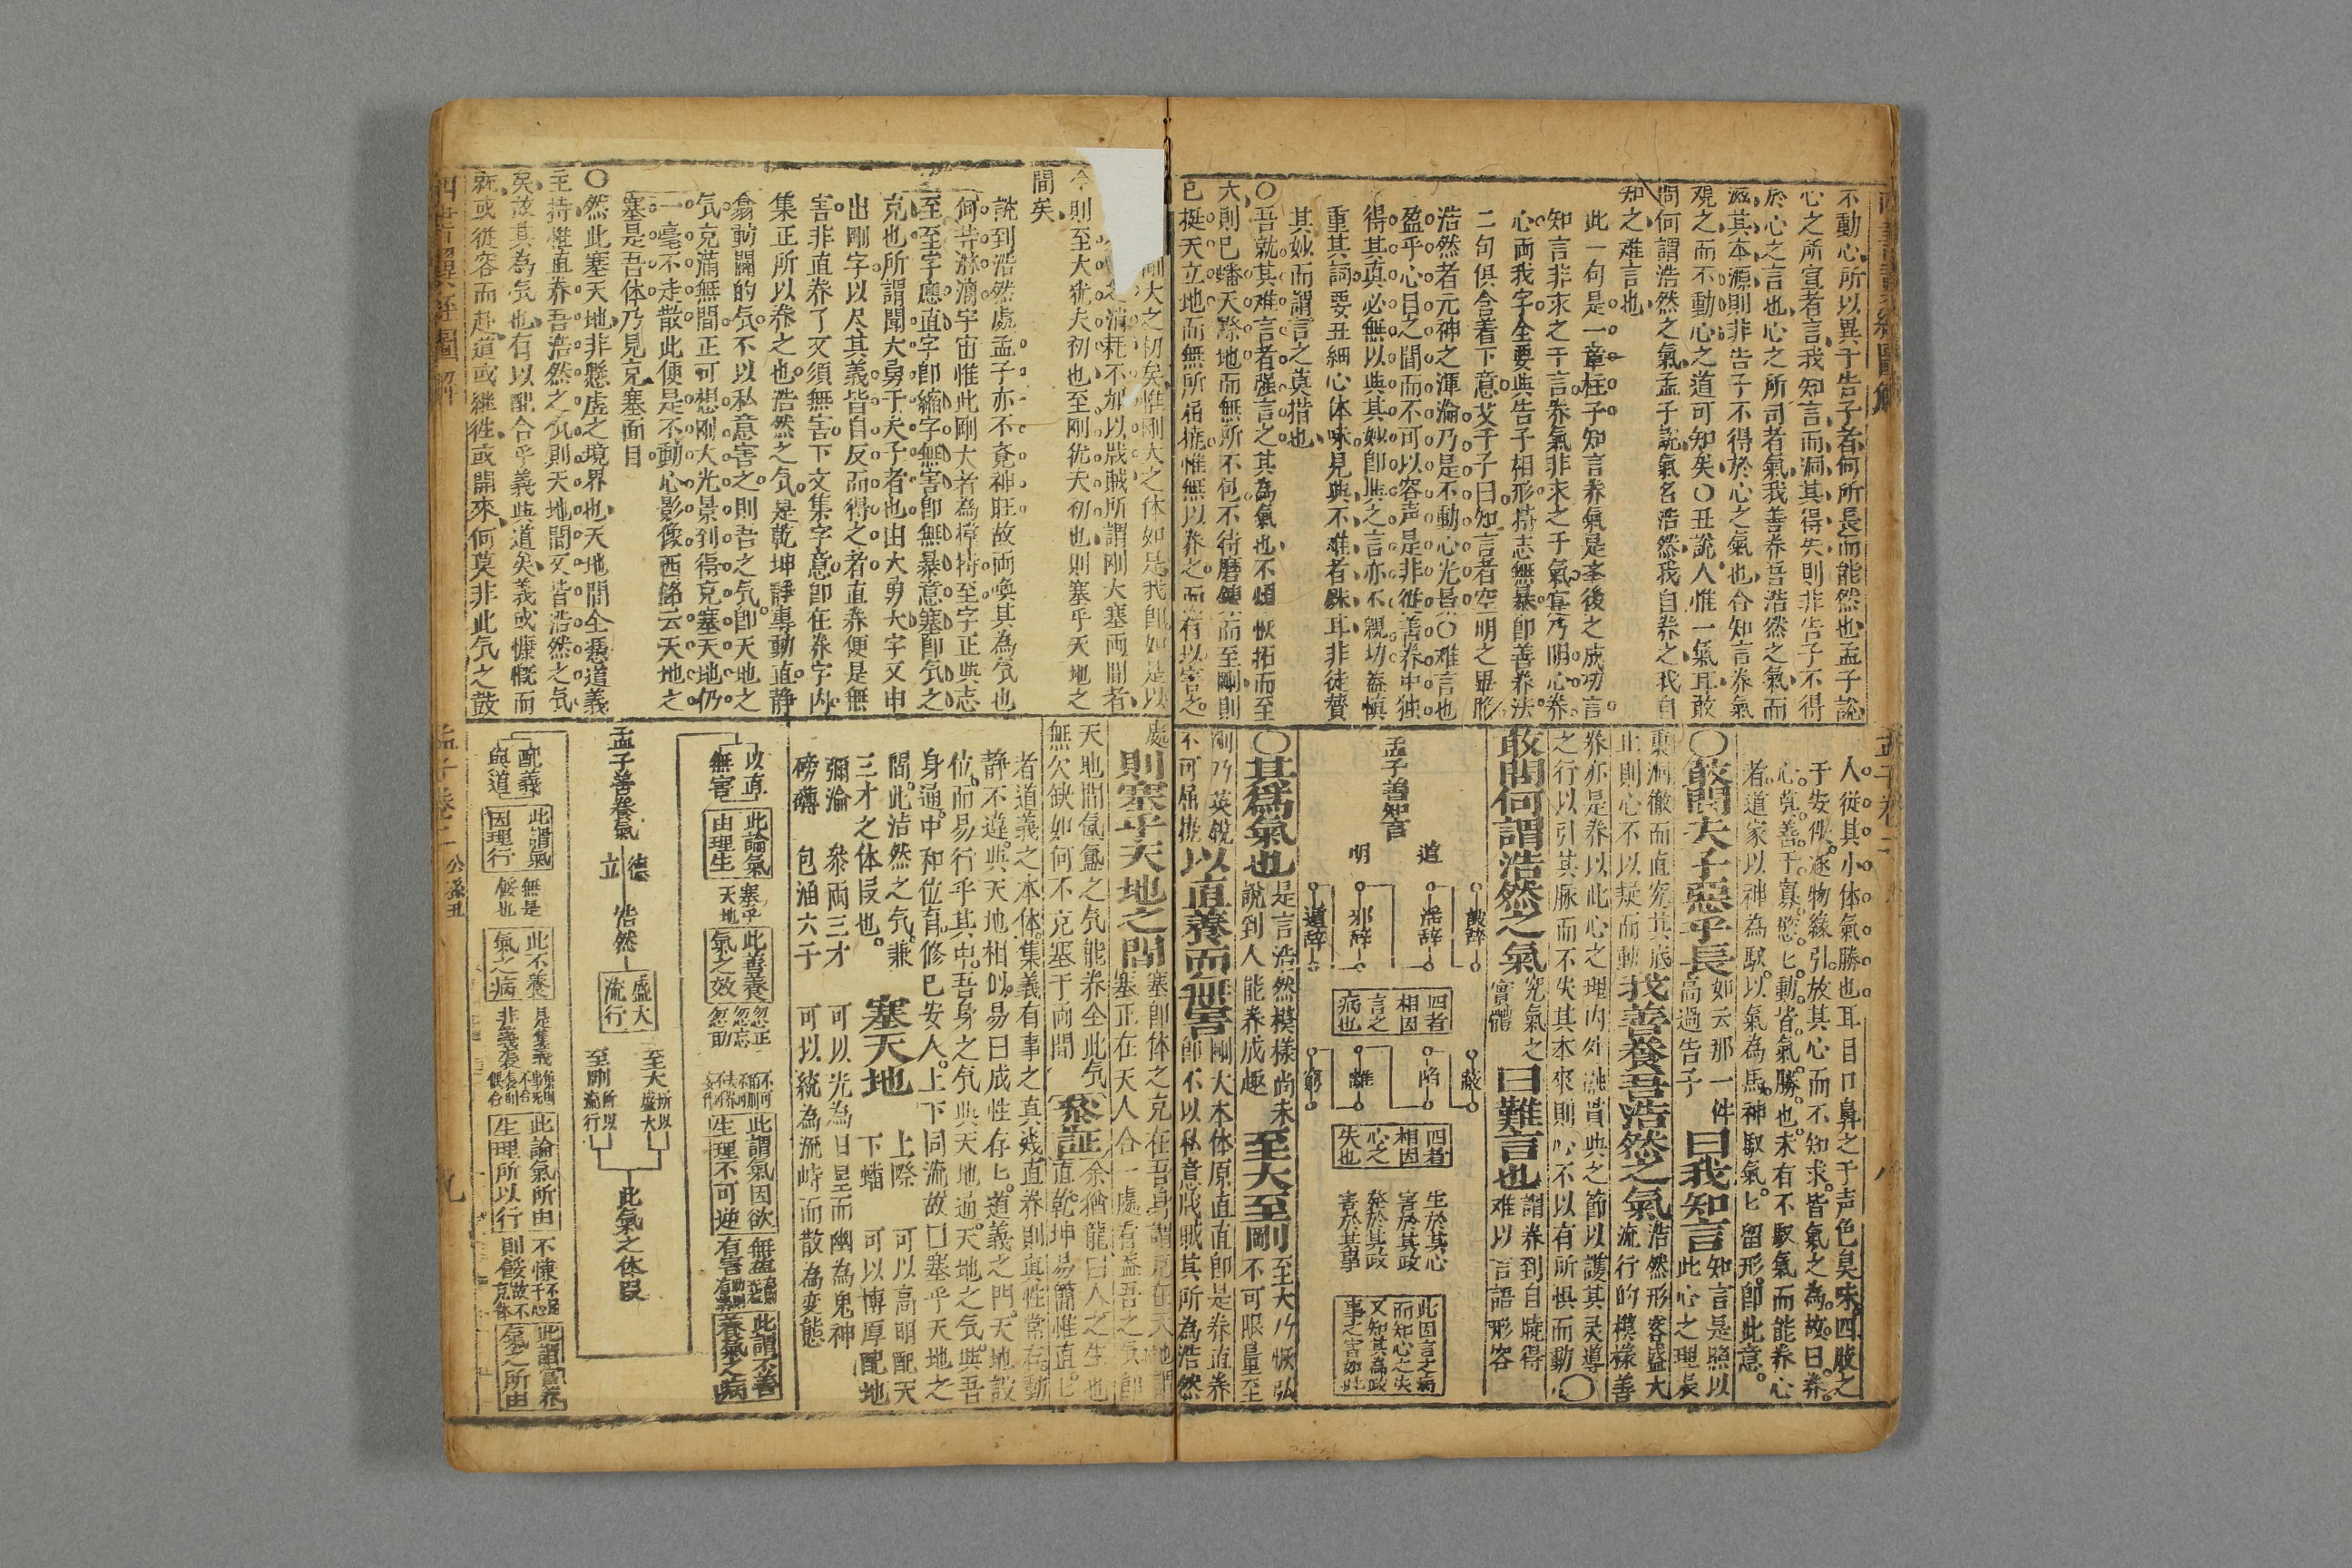 不動心所以異于告子者何所長而能然也孟子說
心之所宣者言我知言而洞其得失則非告子不得
於心之言也心之所司者氣我善养吾浩然之氣而
滋其本源則非告子不得於心之氣也合知言养氣
观之而不動心之道可知矣〇丑說人惟一氣耳敢
問何謂浩然之氣孟子說氣名浩然我自养之我自
知之难言也
此一句是一章柱子知言养氣是圣後之成功言
知言非求之于言养氣非求之于氣宜乃明心养
心両我字全要與告子相形持志無暴即善养法
二句俱含着下意艾千子曰知言者空明之畢照
浩然者元神之渾淪乃是不動心光景〇难言也
盈乎心目之間而不可以容声是非従善养中独
得其真必無以與其妙即與之言亦不親切葢慎
重其詞要丑細心体味見與不难者殊耳非徒贊
其妙而謂言之莫措也
〇吾就其难言者强言之其為氣也不惧恢拓而至
大則已蟠天際地而無所不包不待磨鍊而至剛則
已挺天立地而無所屈撓惟無以养之而有以害之
人從其小体氣勝也耳目口鼻之于声色臭味四肢之
于安佚逐物緣引放其心而不知求皆氣之為故曰养
心莫善于寡慾匕動皆氣勝也未有不馭氣而能养心
者道家以神為馭以氣為馬神馭氣匕留形即此意
〇敢問夫子惡乎長如云那一件
高過告子曰我知言知言是照以
此心之理長
東洞徹而直究其底
止則心不以疑而動我善養吾浩然之氣浩然形容盛大
流行的模樣善
养亦是养以此心之理内外融貫與之節以護其灵導
之行以引其脉而不失其本來則心不以有所惧而動〇
敢問何謂浩然之氣究氣之
實體曰難言也謂养到自曉得
难以言語形容
孟子善知言
道
明
詖辞
淫辞
邪辞
遁辞
四者
相因
言之
病也
蔽
陷
離
窮
四者
相因
心之
失也
生於其心
害於其政
發於其政
害於其事
此因言之病
而知心之失
又知其為政
事之害如此
〇其為氣也是言浩然模樣尚未
說到人能养成趣至大至剛至大乃恢弘
不可限量至
剛乃英銳
不可屈撓以直養而無害剛大本体原直直即是养直养
即不以私意戕賊其所為浩然
剛大之初矣惟剛大之体如是我即如是以
之消耗不加以戕賊所謂刚大塞両間者
今則至大犹夫初也至刚犹夫初也則塞乎天地之
間矣
說到浩然處孟子亦不竟神旺故両喚其為気也
何等淋漓宇宙惟此剛大者為撑持至字正與志
至至字應直字即縮字無害即無暴意塞即気之
克也所謂聞大勇于夫子者也由大勇大字又申
出剛字以尽其義皆自反而得之者直养便是無
害非直养了又須無害下文集字意即在养字内
集正所以养之也浩然之気是乾坤靜專動直靜
翕動闢的気不以私意害之則吾之気即天地之
気充滿無間正可想刚大光景到得充塞天地仍
一毫不走散此便是不動心影像西銘云天地之
塞是吾体乃見充塞面目
〇然此塞天地非懸虛之境界也天地間全憑道義
主持惟直养吾浩然之気則天地間又皆浩然之気
矣故其為気也有以配合乎義與道矣義或慷慨而
就或従容而赴道或継徃或開來何莫非此気之鼓
處則塞乎天地之間塞即体之充在吾身謂克在天地謂
塞正在天人合一處看葢吾之気即
天地間氤氳之気能养全此気
無欠缺如何不克塞于両間
〔參証〕余猶龍曰人之生也
直乾坤易簡惟直匕
者道義之本体集義有事之真㡬直养則真性常存動
静不違與天地相似易曰成性存匕道義之門天地設
位而易行乎其中吾身之気與天地通天地之気與吾
身通中和位育修已安人上下同流故曰塞乎天地之
間此浩然之気兼
三才之体叚也
塞天地
上際 可以高明配天
下蟠 可以博厚配地
彌淪 叅両三才 可以光為日星而幽為鬼神
磅礴 包涵六子 可以統為流峙而散為变態
以直
無害
此論氣
由理生
塞乎
天地
此善養
氣之效
勿正
勿忘
勿助
此謂氣因欲
生理不可逆
無益
有害
此謂不善
養氣之病
孟子善養氣
德
立
浩然
盛大
流行
至大
至剛
所以
盛大
所以
流行
此氣之体叚
配義
與道
此謂氣
因理行
無是
餒也
此不養
氣之病
是集義
非義襲
此論氣所由
生理所以行
不慊
則餒
此謂當养
氣之所由
孟子卷二
公孫丑
九
四書翼經圖解
孟子卷二
八